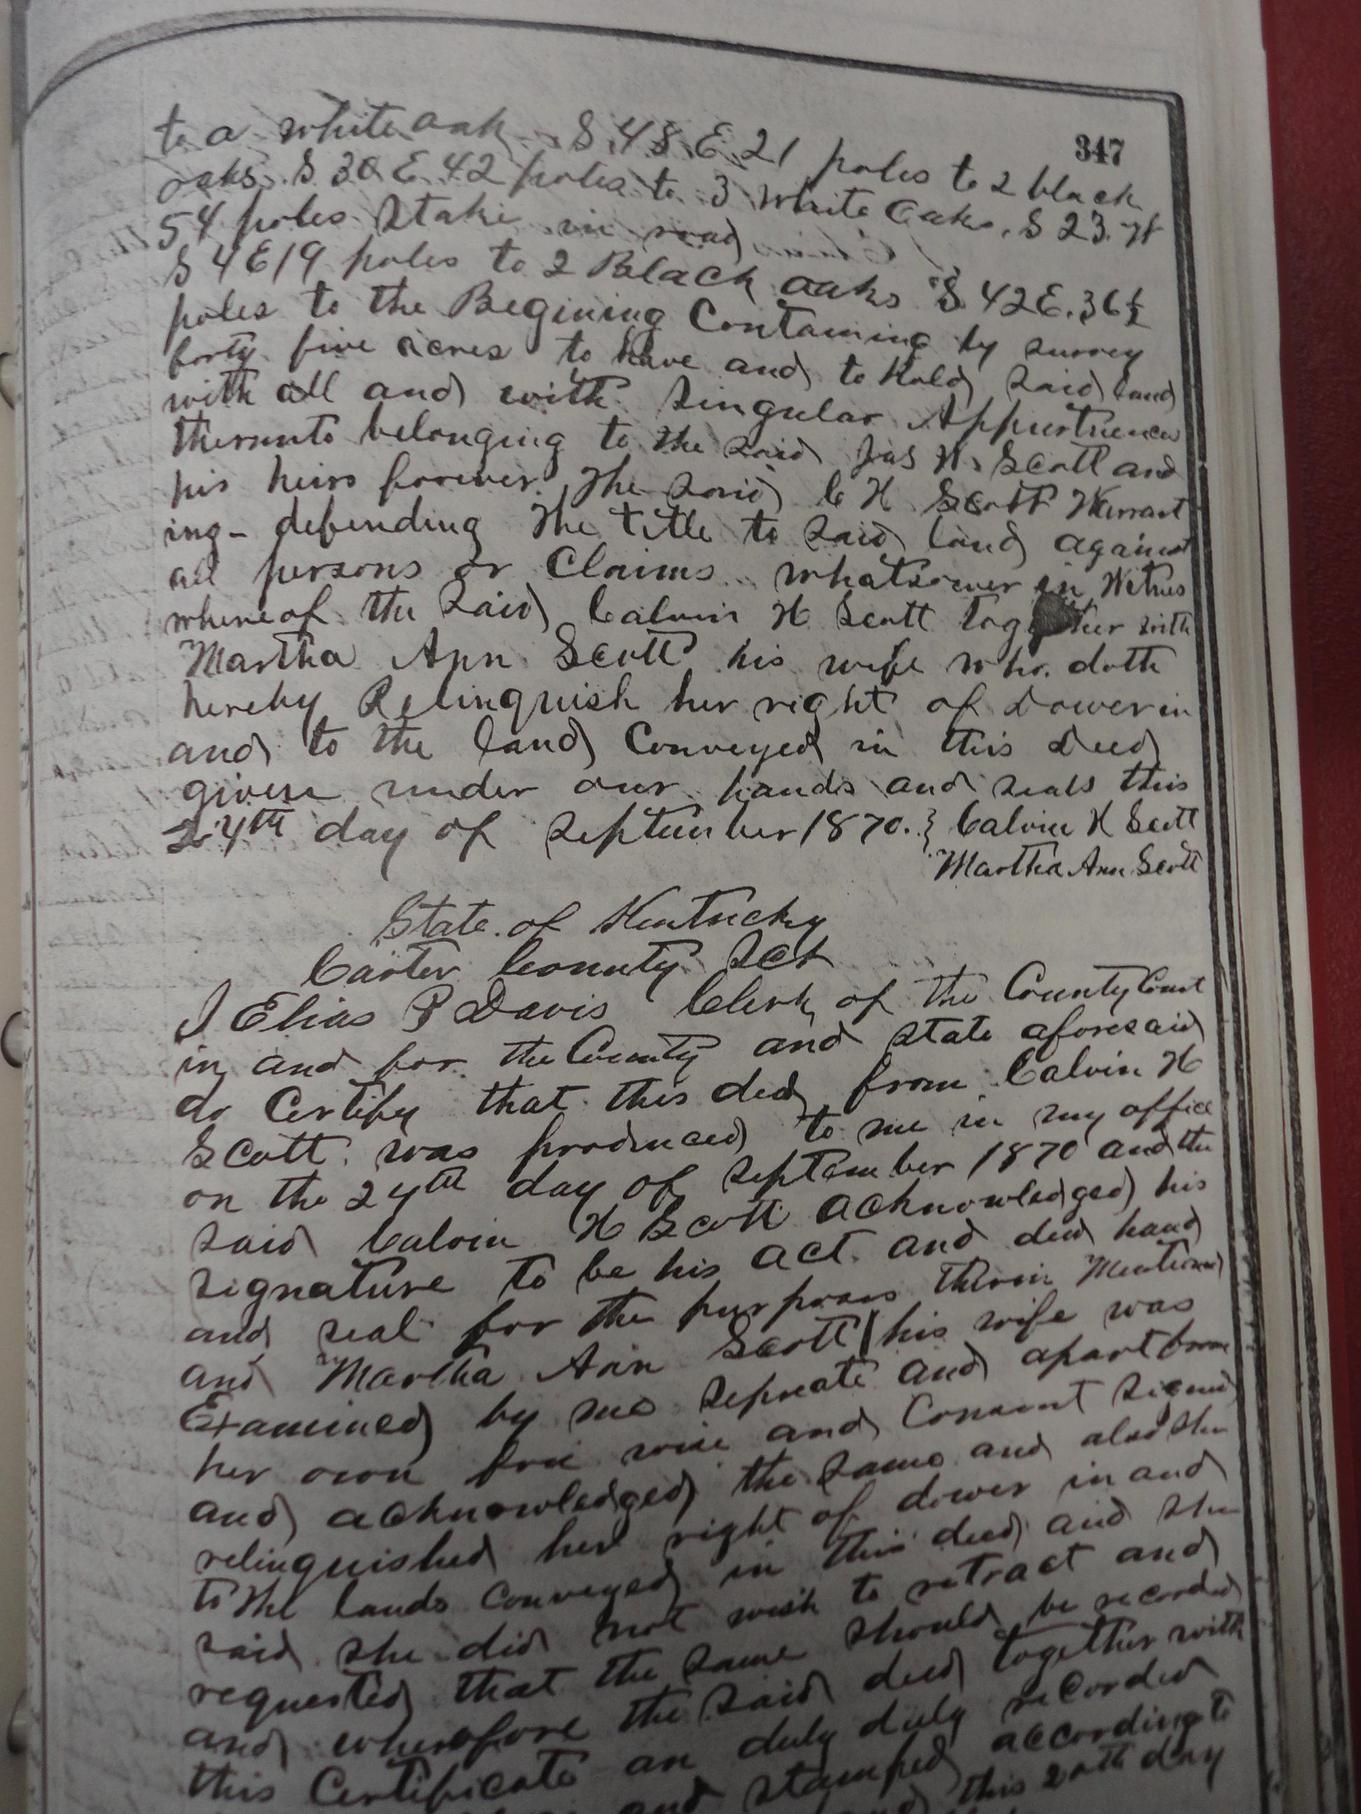 347
to a white oak S 48 E 21 poles to 2 black
oaks S 30 E 42 poles to 3 white oaks, S 23 W
54 poles stake in road
S 4 E 19 poles to 2 Black oaks S 42 E. 36 1/2
poles to the Begining Containing by survey
forty five acres to have and to hold said land
with all and with singular Appurtuences
thereunto belonging to the said Jas H. Scott and
his heirs forever. The said C H Scott Warrant
ing - defending The title to said land against
all persons or Claims whatsoever in Witnes
whereof the said Calvin H Scott together with
Martha Ann Scott his wife who doth
hereby Relinquish her right of dower in
and to the land Conveyed in this deed
given under our hands and seals this
24th day of September 1870. } Calvin H Scott
Martha Ann Scott
State of Kentucky
Carter County Sct
I Elias P Davis Clerk of the County Court
in and for the County and state aforesaid
do Certify that this deed from Calvin H
Scott was produced to me in my office
on the 24th day of September 1870 and the
said Calvin H Scott acknowledged his
signature to be his act and deed hand
and seal for the purposes therein Mentioned
and Martha Ann Scott his wife was
Examined by me sepreate and apart from
her own free will and Consent signed
and acknowledged the same and also she
relinquished her right of dower in and
to the lands Conveyed in this deed and she
said she did not wish to retract and
requested that the same should be recorded
and wherefore the said deed together with
this Certificate an duly duly recorded
and stamped according to
this 20th day